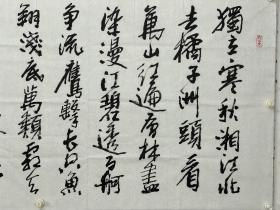 獨立寒秋湘江北
去橘子洲頭看
萬山红遍層林盡
染漫江碧透百舸
争流鷹擊长空魚
翔淺底萬類霜天